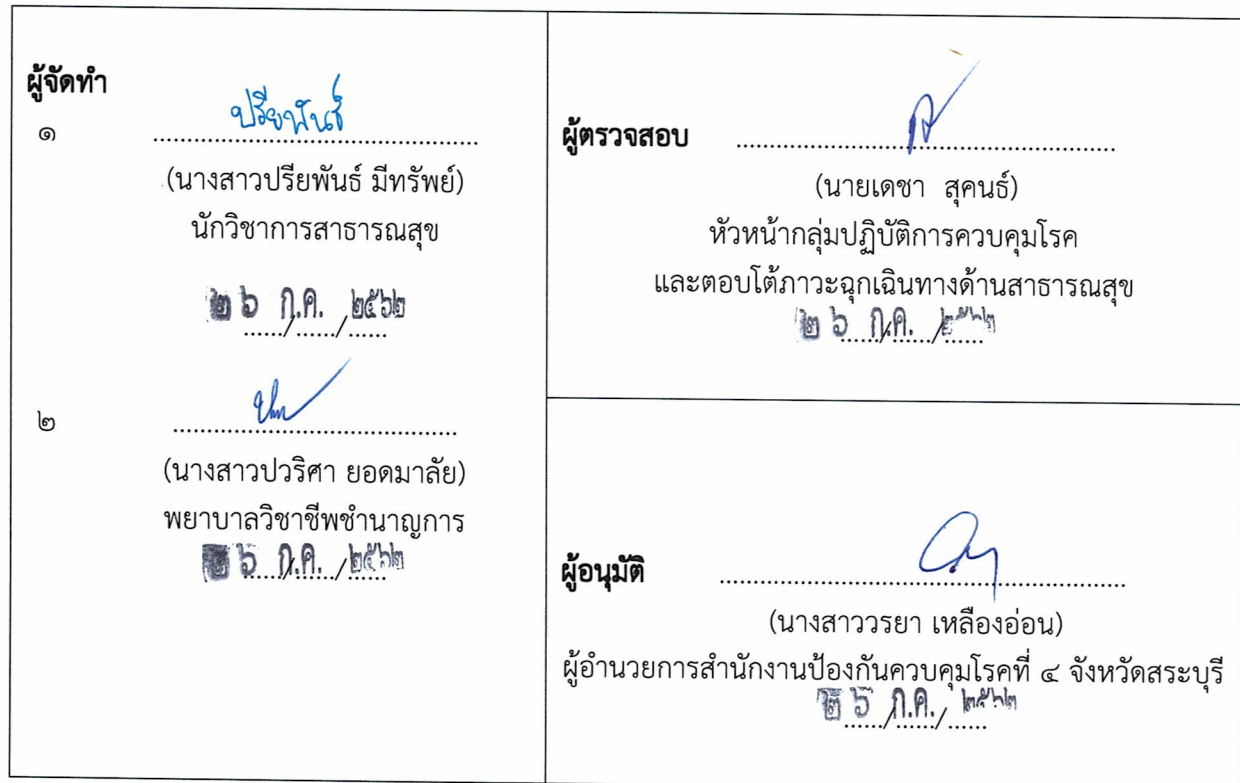 ผู้จัดทำ
๑ ปรียพันธ์
(นางสาวปรียพันธ์ มีทรัพย์)
นักวิชาการสาธารณสุข
๒ ๖ ก.ค. ๒๕๖๒
๒
(นางสาวปวริศา ยอดมาลัย)
พยาบาลวิชาชีพชำนาญการ
๒ ๖ ก.ค. ๒๕๖๒
ผู้ตรวจสอบ
(นายเดชา สุคนธ์)
หัวหน้ากลุ่มปฏิบัติการควบคุมโรค
และตอบโต้ภาวะฉุกเฉินทางด้านสาธารณสุข
๒ ๖ ก.ค. ๒๕๖๒
ผู้อนุมัติ
(นางสาววรยา เหลืองอ่อน)
ผู้อำนวยการสำนักงานป้องกันควบคุมโรคที่ ๔ จังหวัดสระบุรี
๒ ๖ ก.ค. ๒๕๖๒